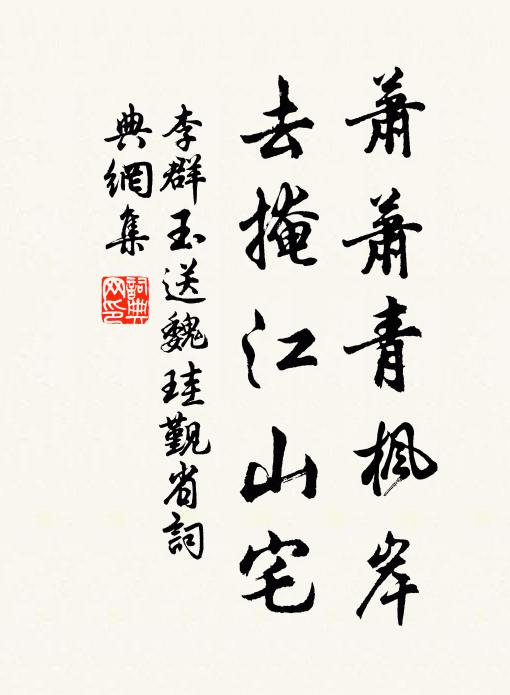 蕭蕭青楓岸
去掩江山宅
李群玉送魏珪觐省詞
典網集
詞典
网印